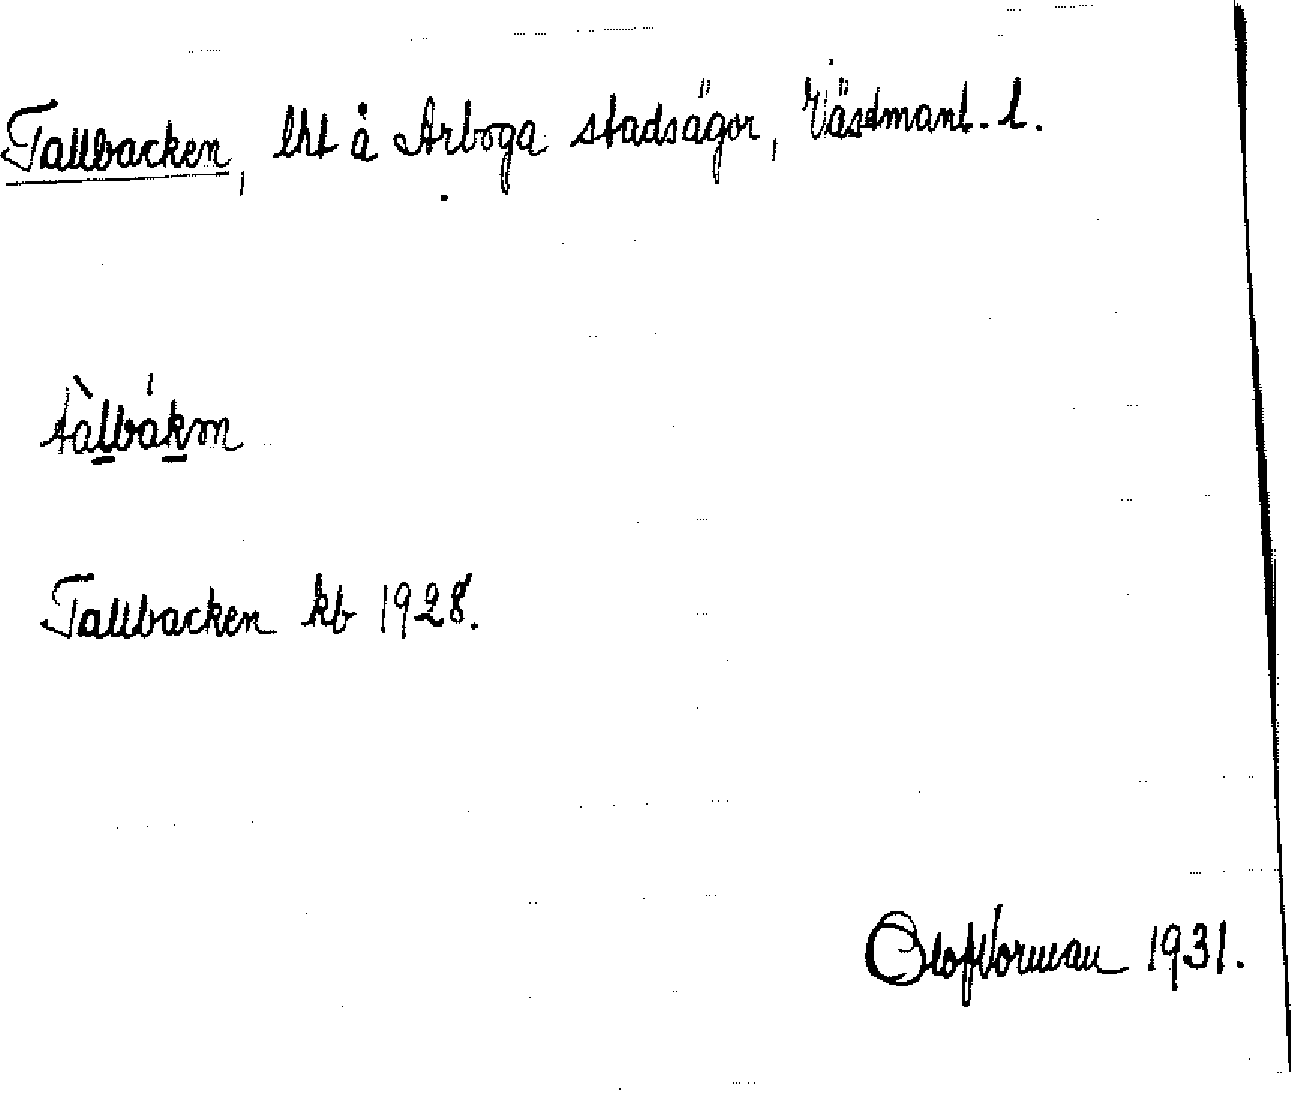 Tallbacken, lht å Arboga stadsägor, Västmanl. l.
tàlbákm
Tallbacken kb 1928.
Olof Norman 1931.